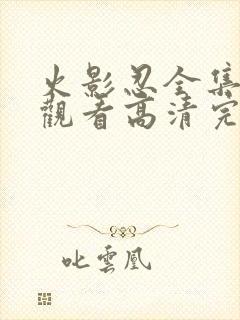 火影忍全集
觀看高清完
叱雲鳳